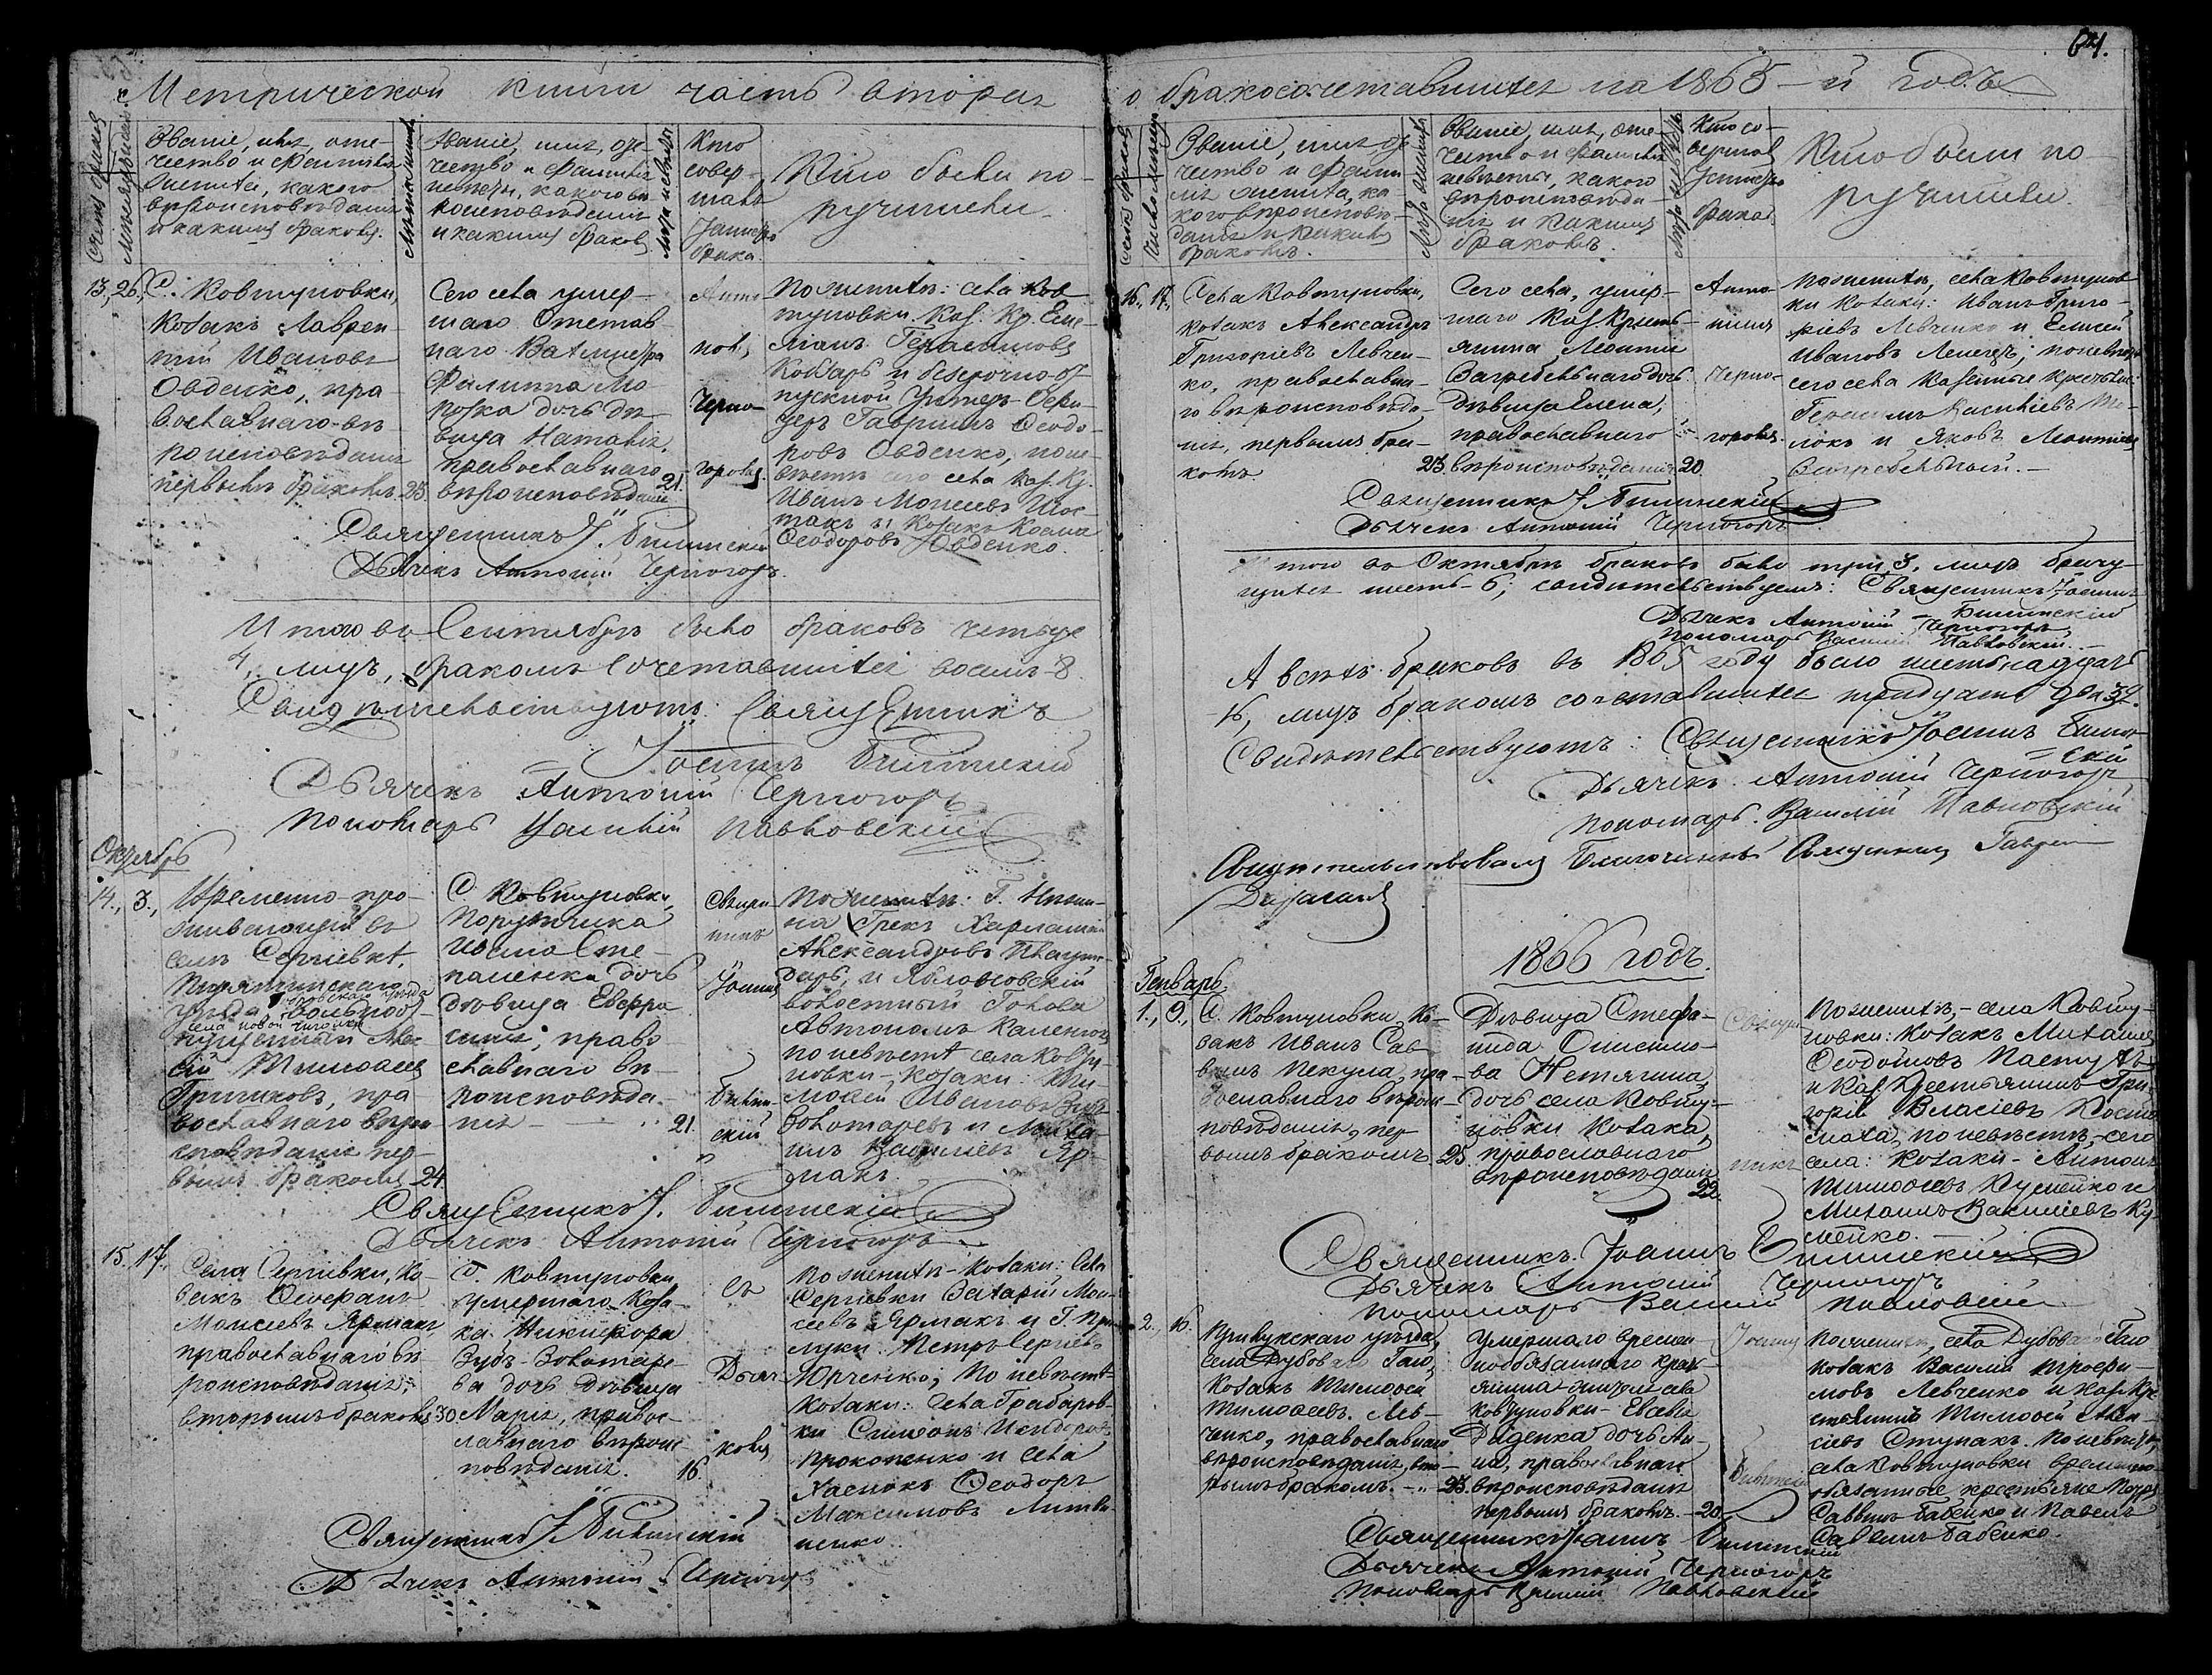 64.
Метрической книги часть вторая
о бракосочетавшихся на 1865-й годъ
Счетъ браковъ
Званіе, имя, оте-
чество и фамилія
жениха, какого
вѣроисповѣданія
и какимъ бракомъ.
Лѣта жениха
Званіе, имя, оте-
чество и фамилія
невѣсты, какого вѣ-
роисповѣданія
и какимъ бракомъ
Лѣта невѣсты
Кто
совер-
шалъ
таинство
брака.
Кто были по-
ручители
13., 26.,
С. Ковтуновки,
козакъ Лаврен-
тій Ивановъ
Овденко, пра-
вославнаго вѣ-
роисповѣданія
первымъ бракомъ 25.
Сего села умер-
шаго Отстав-
наго
Филиппа Мо-
дочь дѣ-
вица Наталія,
православнаго
вѣроисповѣданія
21.
Анто-
ній
Черно-
горовъ
По женихѣ: села Ков-
туновки Каз. Кр. Еме-
ліанъ Герасимовъ
и безсрочно-от-
пускной Унтеръ-Офи-
церъ Гавріилъ Ѳеодо-
ровъ Овденко, по не-
вѣстѣ сего села Каз. Кр.
Иванъ Моисеевъ
и Козакъ Косма
Ѳеодоровъ Овденко.
Священникъ І. Билинскій
Дьячекъ Антоній Черногоръ.
Итого въ Сентябрѣ было браковъ четыре
4, лицъ, бракомъ сочетавшихся восемь 8.
Свидѣтельствуютъ: Священникъ
Іоаннъ Билинскій
Дьячекъ Антоній Черногоръ
Пономарь Василій Павловскій
Октябрь
14., 3.,
Временно про-
живающій въ
селѣ Сергіевкѣ,
Пирятинскаго
уѣзда
села Новой
Тимоѳеевъ
пра-
вославнаго вѣро-
исповѣданія пер-
вымъ бракомъ 24
С. Ковтуновки,
Порутчика
Сте-
паненка дочь
дѣвица Евфро-
синія, право-
славнаго вѣ-
роисповѣда-
нія 21.
Священ-
никъ
Іоаннъ
Билин-
скій
По женихѣ: Г. Нѣжи-
на Грекъ Харлампій
Александровъ
и Яблоновскій
волостный Голова
Автономъ
по невѣстѣ села Ковту-
новки - козаки: Ти-
моѳей Ивановъ Зубъ-
Золотаревъ и Миха-
илъ Василіевъ Яр-
макъ
Священникъ І. Билинскій
Дьячекъ Антоній Черногоръ
15. 17.
Села Сергіевки, Ко-
закъ Стефанъ
Моисеевъ Ярмакъ,
православнаго вѣ-
роисповѣданія,
вторымъ бракомъ 30
С. Ковтуновки
умершаго Коза-
ка Никифора
Зубъ-Золотаре-
ва дочь дѣвица
Марія, правос-
лавнаго вѣроис-
повѣданія. 16.
съ
Дьяч-
комъ
По женихѣ - козаки: села
Сергіевки Захарій Мои-
сеевъ Ярмакъ и Г. При-
луки Петръ Сергіевъ
Юрченко; по невѣстѣ
козаки: села Грабаров-
ки Симеонъ Исидоровъ
Прокопенко и села
Ѳеодоръ
Максимовъ Литви-
ненко.
Священникъ І. Билинскій
Дьячекъ Антоній Черногоръ
Званіе, имя оте-
чество и фами-
лія жениха, ка-
кого вѣроисповѣ-
данія и какимъ
бракомъ.
Званіе, имя, оте-
чество и фамилія
невѣсты, какого
вѣроисповѣда-
нія и какимъ
бракомъ.
Кто со-
вершалъ
таинство
брака.
Кто были по-
ручители.
16. 17.
Села Ковтуновки,
козакъ Александръ
Григоріевъ Левчен-
ко, православна-
го вѣроисповѣда-
нія, первымъ бра-
комъ. 23.
Сего села, умер-
шаго Каз. Кресть-
янина Леонтія
Загребельнаго дочь
дѣвица Елена,
православнаго
вѣроисповѣданія 20.
Анто-
ніемъ
Черно-
горомъ.
По женихѣ, села Ковтунов-
ки козаки: Иванъ Григо-
ріевъ Левченко и Елисей
Ивановъ; по невѣстѣ
сего села Казенные крестьяне:
Герасимъ Василіевъ
и Яковъ Леонтіевъ
Загребельный.
Священникъ І. Билинскій
Дьячекъ Антоній Черногоръ
Итого въ Октябрѣ браковъ было три 3, лицъ брачу-
щихся шесть 6; свидѣтельствуемъ: Священникъ Іоаннъ
Билинскій
Дьячекъ Антоній Черногоръ
Пономарь Василій Павловскій.
А всѣхъ браковъ въ 1865 году было шестьнадцать
16, лицъ бракомъ сочетавшихся тридцать два 32.
Свидѣтельствуютъ: Священникъ Іоаннъ Билин-
скій
Дьячекъ Антоній Черногоръ
Пономарь. Василій Павловскій
Свидѣтельствовалъ Благочинный Священникъ Гавріилъ
1866 годъ.
Генварь.
1., 9.,
С. Ковтуновки, Ко-
закъ Иванъ Сав-
винъ Пекула, пра-
вославнаго вѣроис-
повѣданія, пер-
вымъ бракомъ 25.
Дѣвица Стефа-
нида Онисимо-
ва Нетягина,
дочь села Ковту-
новки козака,
православнаго
вѣроисповѣданія
22.
Священ-
никъ
По женихѣ, - села Ковту-
новки: козакъ Михаилъ
Ѳеодоровъ
и Каз. Крестьянинъ Гри-
горій Власіевъ
по невѣстѣ, - сего
села: козаки - Антонъ
Тимоѳеевъ Кумейко и
Михаилъ Василіевъ Ку-
мейко.
Священникъ Іоаннъ Билинскій
Дьячекъ Антоній Черногоръ
Пономарь Василій Павловскій
2., 16.
Прилукскаго уѣзда,
села Дубоваго Гаю,
Козакъ Тимоѳей
Тимоѳеевъ Лев-
ченко, православнаго
вѣроисповѣданія, вто-
рымъ бракомъ. 25.
Умершаго времен-
нообязаннаго крес-
тьянина села
Ковтуновки - Саввы
Диденка дочь Ан-
на, православнаго
вѣроисповѣданія
первымъ бракомъ. 20.
Іоаннъ
Билинскій
По женихѣ, села Дубоваго Гаю
козакъ Василій Трофи-
мовъ Левченко и Каз. Кре-
стьянинъ Тимоѳей Алек-
сіевъ Ступакъ. По невѣстѣ,
села Ковтуновки временно-
обязанные крестьяне
Саввинъ Бабенко и Павелъ
Саввинъ Бабенко.
Священникъ Іоаннъ Билинскій
Дьячекъ Антоній Черногоръ
Пономарь Василій Павловскій